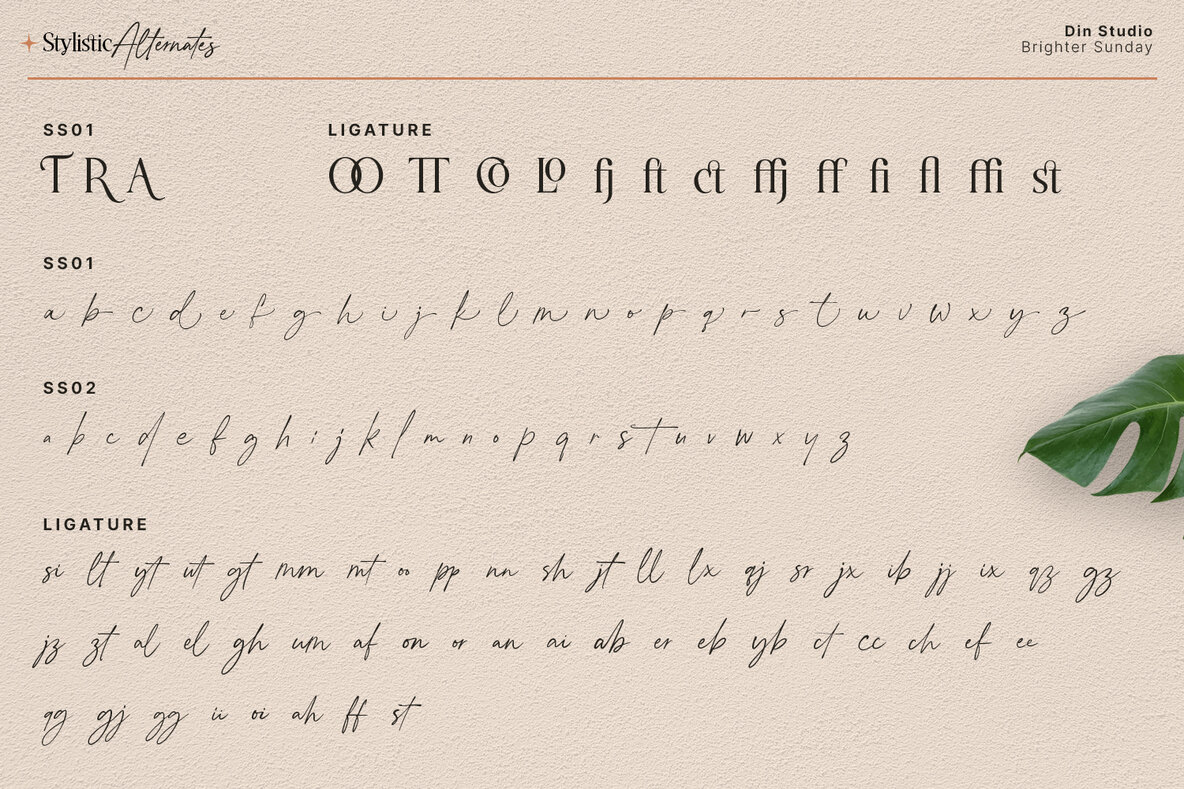 Stylistic Alternates
Din Studio
Brighter Sunday
SS01
T R A
LIGATURE
OO TT CO LO fj ft ct ffj ff fi fl ffi st
SS01
a b c d e f g h i j k l m n o p q r s t u v w x y z
SS02
a b c d e f g h i j k l m n o p q r s t u v w x y z
LIGATURE
si lt yt ut gt mm mt oo pp nn sh jt ll lx qj sr jx ib jj ix qz gz
jz zt al el gh um af on or an ai ab er eb yb ct cc ch ef ee
qg gj gg ii oi ah ff st